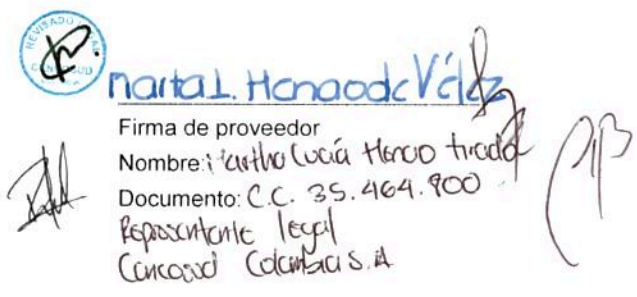 REVISADO LEGAL
CENCOSUD
Marta L. Henao de Vélez
Firma de proveedor
Nombre: Martha Lucía Henao tirado
Documento: C.C. 35.464.900
Representante legal
Cencosud Colombia S.A